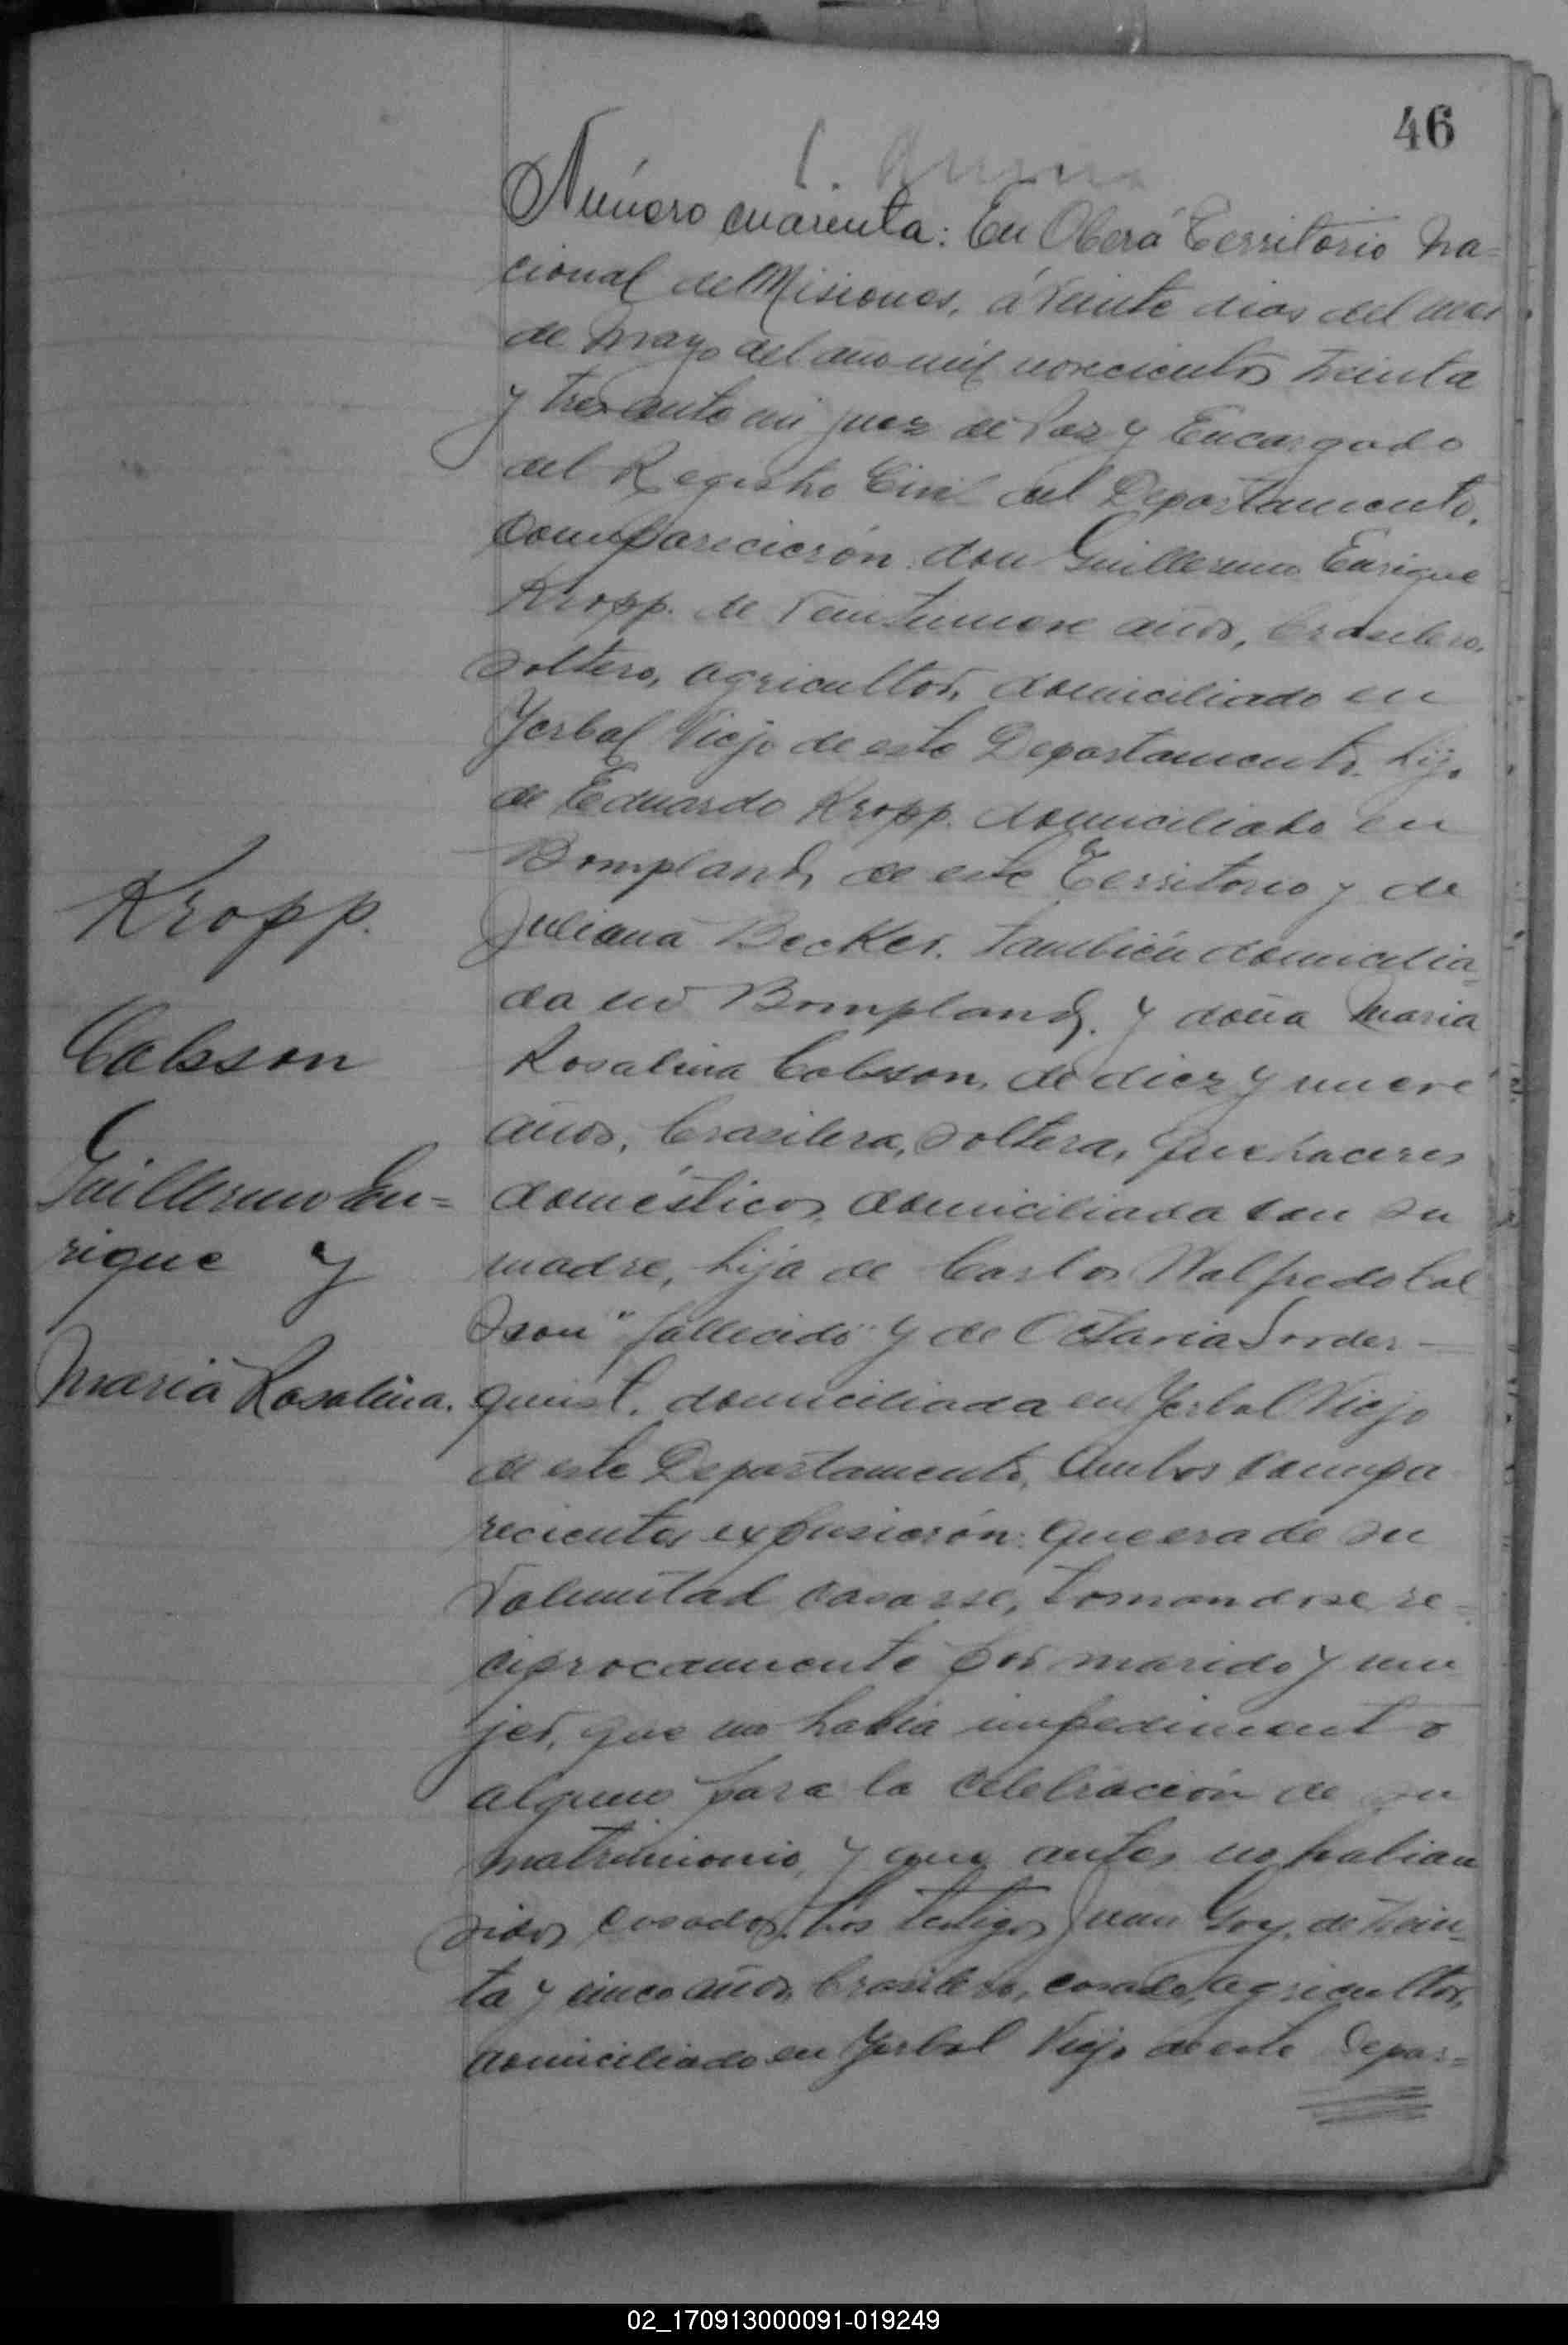 46
Número cuarenta: En Oberá Territorio Na=
cional de Misiones, á veinte dias del mes
de Mayo del año mil novecientos treinta
y tres ante mi juez de Paz y Encargado
del Registro Civil del Departamento,
Comparecierón don Guillermo Enrique
Kropp. de veintinueve años, brasilero,
soltero, agricultor, domiciliado en
Yerbal Viejo de este Departamento. hijo
de Eduardo Kropp. domiciliado en
Bompland, de este Territorio y de
Juliana Becker. también domicilia
da en Bompland. y doña Maria
Rosalina Colsson, de diez y nueve
años, brasilera, soltera, quehaceres
domésticos, domiciliada con su
madre, hija de Carlos Walfredo Col
sson "fallecido" y de Octavia
quist. domiciliada en Yerbal Viejo
de este Departamento, Ambos compa
recientes expusierón: que era de su
voluntad casarse, tomandose re=
ciprocamente por marido y mu
jer, que no habia impedimento
alguno para la celebración de su
matrimonio, y que antes no habian
sidos casados. Los testigos Juan Goy, de trein=
ta y cinco años, brasilero, casado, agricultor,
domiciliado en Yerbal Viejo de este Depar=
Kropp.
Colsson
Guillermo En=
rique y
Maria Rosalina.
02_170913000091-019249